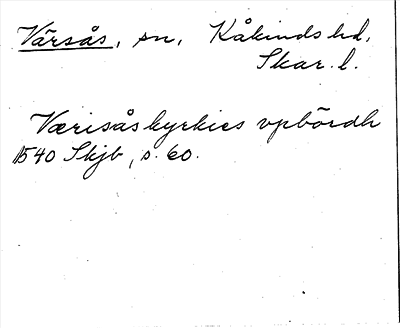 Vårsås, sn, Kåkinds hd,
Skar. l.
Værisås kyrkies vpbördh
1540 Skjb, s. 60.